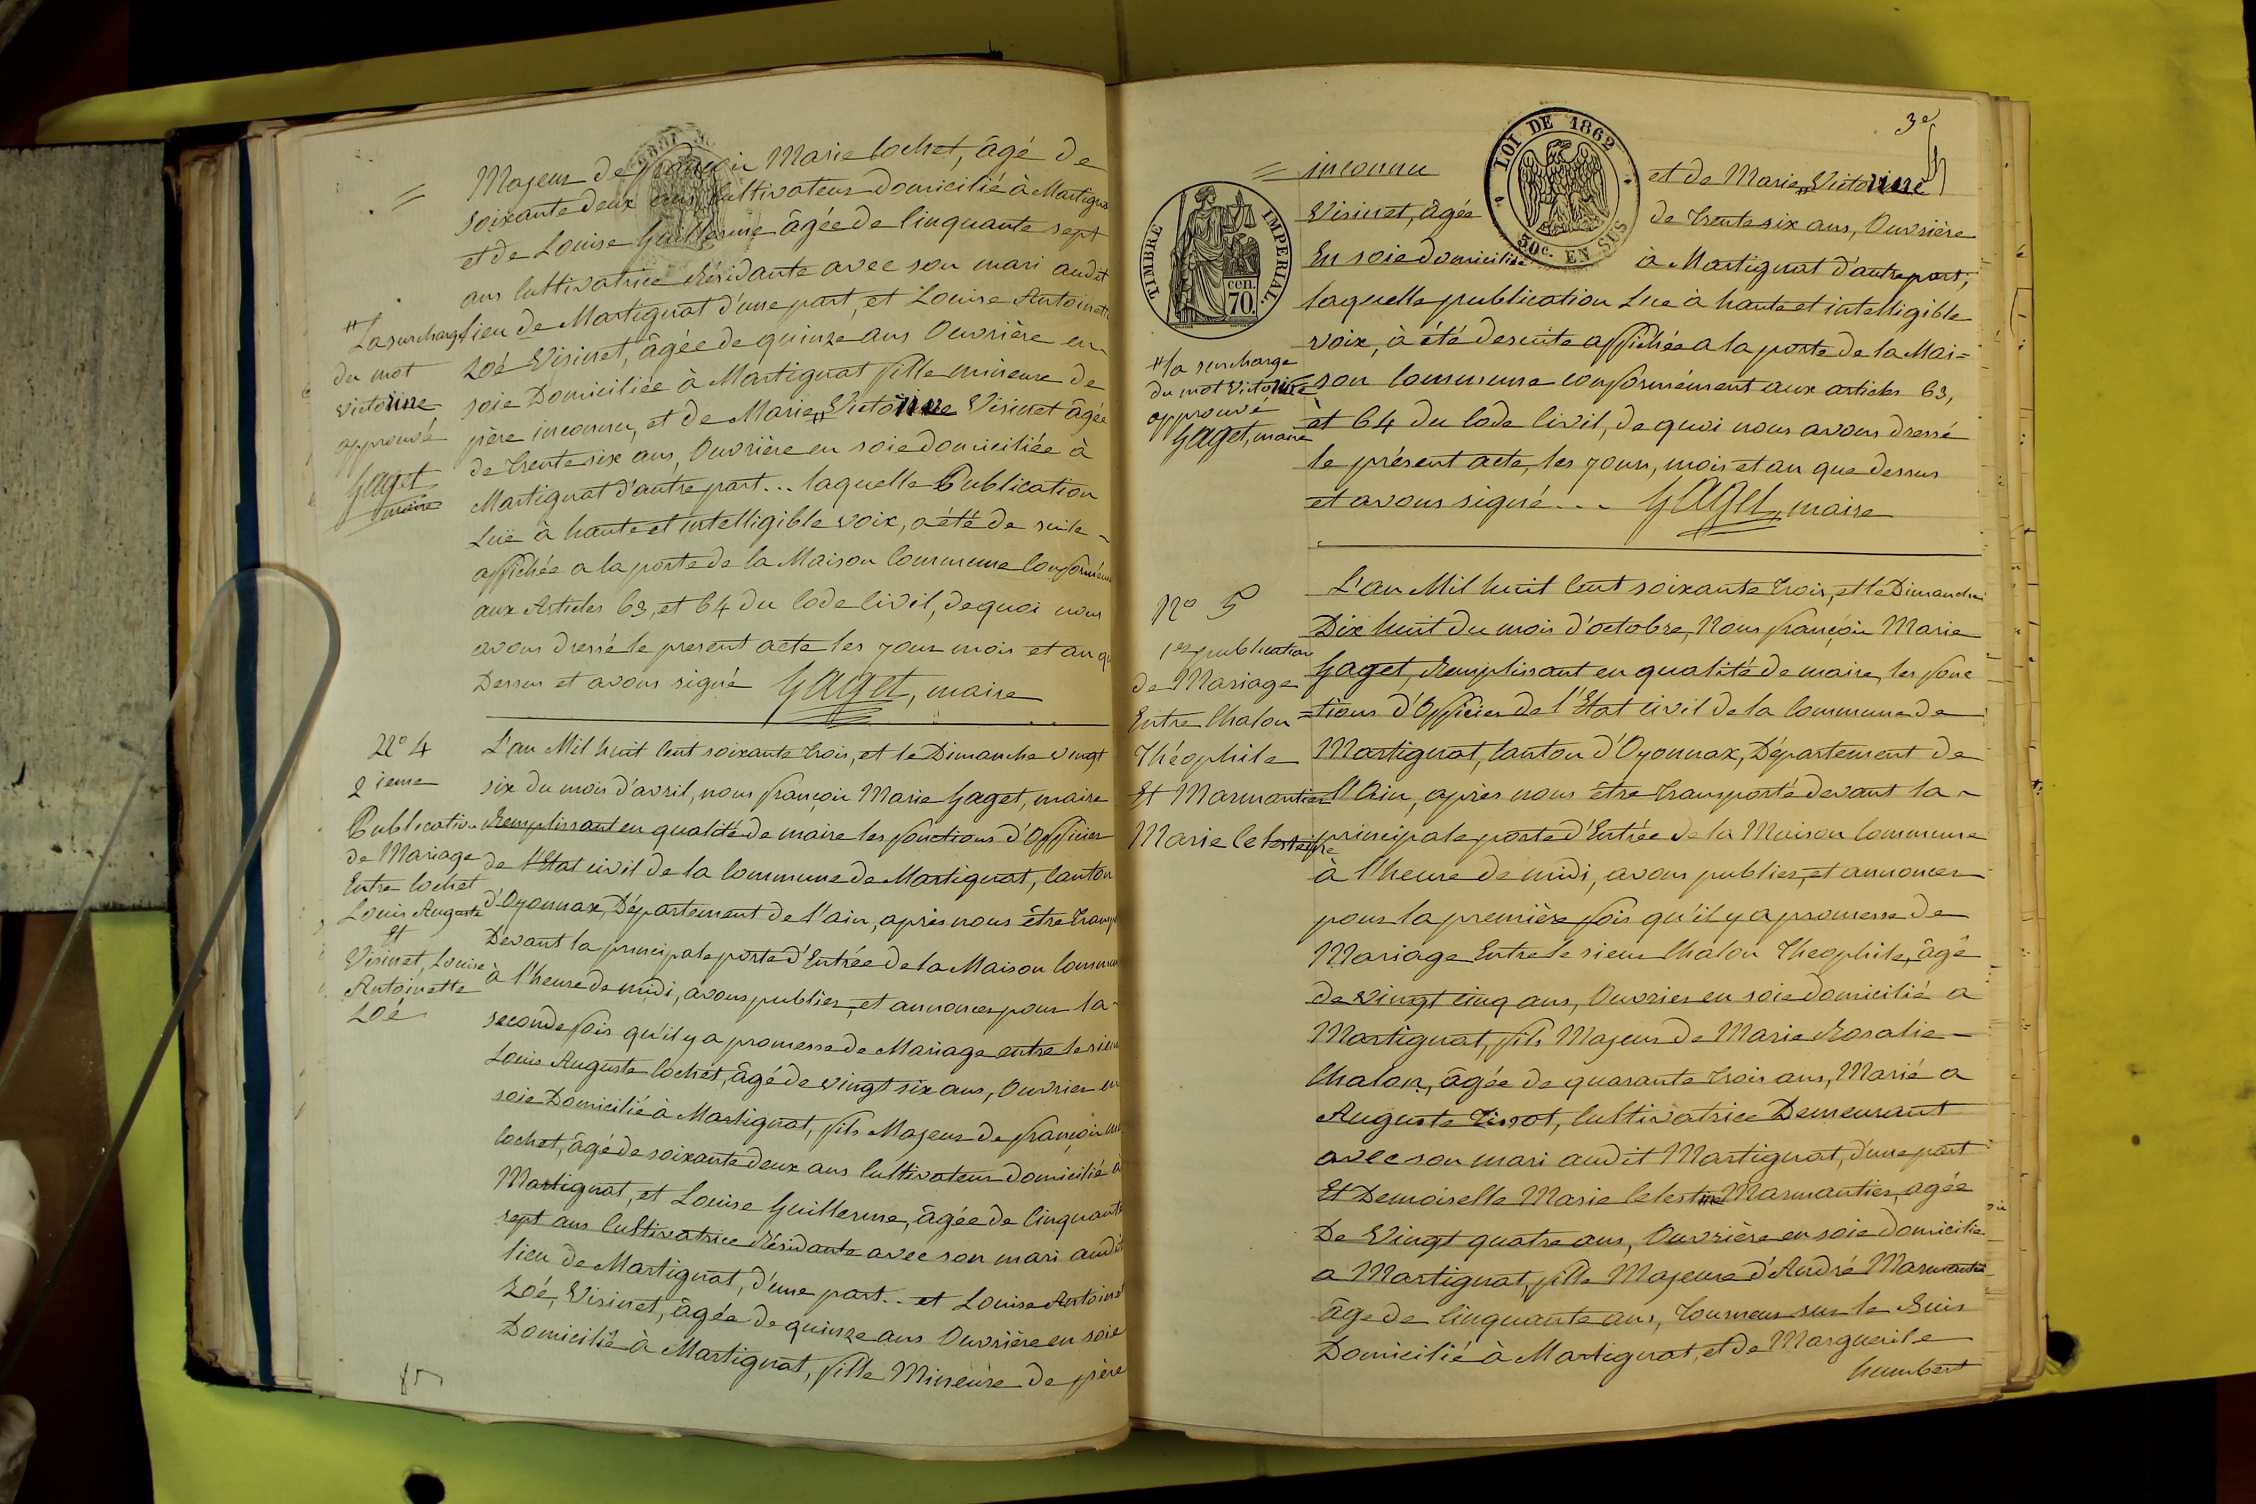 Majeur de françois Marie Cochet, âgé de
soixante deux ans, Cultivateur domicilié à Martignat
et de Louise Guillerme âgée de Cinquante sept
ans Cultivatrice Résidante avec son mari audit
lieu de Martignat d'une part, et Louise Antoinette
Zoé Visinet, âgée de quinze ans Ouvrière en
soie Domiciliée à Martignat fille mineure de
père inconnu, et de Marie Victorine Visinet âgée
de trente six ans, Ouvrière en soie domiciliée à
Martignat d'autre part... laquelle Publication
Lue à haute et intelligible voix, a été de suite
affichée a la porte de la Maison Commune Conformém
aux Articles 63, et 64 du Code Civil, de quoi nous
avons dressé le present acte les jour mois et an q
Dessus et avons signé Gaget, maire
# La surcharge
du mot
victorine
approuvé
Gaget
maire
N° 4
2 ieme
Publication
de Mariage
Entre Cochet
Louis Auguste
Et
Visinet, Louise
Antoinette
Zoé
L'an Mil huit Cent soixante trois, et le Dimanche vingt
six du mois d'avril, nous françois Marie Gaget, maire
Remplissant en qualité de maire les fonctions d'Officier
de l'Etat civil de la Commune de Martignat, Canton
d'Oyonnax, Département de l'ain, après nous être transp
Devant la principale porte d'Entrée de la Maison Commun
à l'heure de midi, avons publier, et annoncer pour la
seconde fois qu'il y a promesse de Mariage entre le sieur
Louis Auguste Cochet, âgé de vingt six ans, Ouvrier en
soie Domicilié à Martignat, fils Majeur de françois
Cochet, âgé de soixante deux ans Cultivateur domicilié à
Martignat, et Louise Guillerme, âgée de Cinquante
sept ans Cultivatrice Résidante avec son mari audit
lieu de Martignat, d'une part... et Louise Antoine
Zoé, Visinet, âgée de quinze ans Ouvrière en soie
Domicilié à Martignat, fille Mineure de père
3e
inconnu et de Marie Victorine
Visinet, âgée de trente six ans, Ouvrière
En soie domiciliée à Martignat d'autre part;
laquelle publication Lue à haute et intelligible
voix, à été de suite affichée a la porte de la Mai=
son Commune conformément aux articles 63,
èt 64 du Code Civil, de quoi nous avons dressé
le présent acte, les jour, mois et an que dessus
et avons signé... Gaget, maire
LOI DE 1862
50c. EN SUS
TIMBRE IMPERIAL
cen. 70.
# la surcharge
du mot Victorine
approuvé
Gaget, maire
N° 5
1er publication
de Mariage
Entre Chalon
Théophile
Et Marmantier
Marie Celestine
L'an Mil huit Cent soixante trois, et le Dimanche
Dix huit du mois d'octobre, Nous françois Marie
Gaget, Remplissant en qualité de maire, les fonc
=tions d'Officier de l'Etat civil de la Commune de
Martignat, Canton d'Oyonnax, Département de
l'Ain, après nous être transporté devant la
principale porte d'Entrée de la Maison Commune
à l'heure de midi, avons publier, et annoncer
pour la première fois qu'il y a promesse de
Mariage Entre le sieur Chalon Theophile, âgé
de vingt cinq ans, Ouvrier en soie domicilié a
Martignat, fils Majeur de Marie Rosalie
Chalon, âgée de quarante trois ans, Marié a
Auguste Tissot, Cultivatrice Demeurant
avec son mari audit Martignat, d'une part
Et Demoiselle Marie Celestine Marmantier, agée
De Vingt quatre ans, Ouvrière en soie domicilie
a Martignat, fille Majeure d'André Marmantie
âge de Cinquante ans, tourneur sur le Buis
Domicilié à Martignat, et de Marguerite
humbert